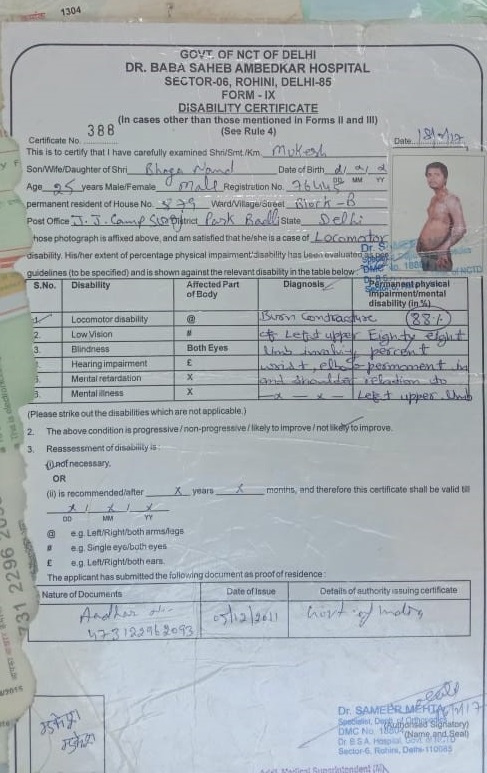 1304
GOVT. OF NCT OF DELHI
DR. BABA SAHEB AMBEDKAR HOSPITAL
SECTOR-06, ROHINI, DELHI-85
FORM - IX
DISABILITY CERTIFICATE
(In cases other than those mentioned in Forms II and III)
(See Rule 4)
Certificate No. 388 Date
This is to certify that I have carefully examined Shri/Smt./Km. Mukesh
Son/Wife/Daughter of Shri Date of Birth
DD MM YY
Age 25 years Male/Female male Registration No.
permanent resident of House No. 879 Ward/Village/Street Block-B
Post Office J.J. Camp District Park Badli State Delhi
whose photograph is affixed above, and am satisfied that he/she is a case of Locomotor
disability. His/her extent of percentage physical impairment/disability has been evaluated as per
guidelines (to be specified) and is shown against the relevant disability in the table below:
S.No. Disability Affected Part of Body Diagnosis Permanent physical impairment/mental disability (in %)
1. Locomotor disability @ Burn Contracture 88%
2. Low Vision # of Left upper Eighty eight
3. Blindness Both Eyes limb involving percent
Hearing impairment £ wrist, elbow permanent in
Mental retardation X and shoulder relation to
Mental illness X - x - x - Left upper limb
(Please strike out the disabilities which are not applicable.)
2. The above condition is progressive / non-progressive / likely to improve / not likely to improve.
3. Reassessment of disability is :
(i) not necessary.
OR
(ii) is recommended/after X years X months, and therefore this certificate shall be valid till
X / X / X
DD MM YY
@ e.g. Left/Right/both arms/legs
# e.g. Single eye/both eyes
£ e.g. Left/Right/both ears.
The applicant has submitted the following document as proof of residence :
Nature of Documents Date of Issue Details of authority issuing certificate
Aadhar No. 05/12/2011 Govt of India
473122962093
731 2296
मुकेश
मुकेश
Dr. SAMEER MEHTA
(Authorised Signatory)
DMC No. (Name and Seal)
Dr. B.S.A. Hospital
Sector-6, Rohini, Delhi-110085
Medical Superintendent